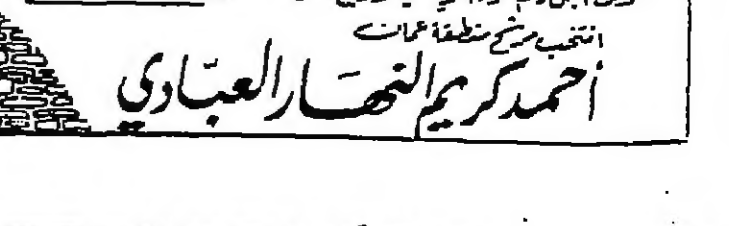 انتخب مرشح منطقة عمان
أحمد كريم النهار العبّادي